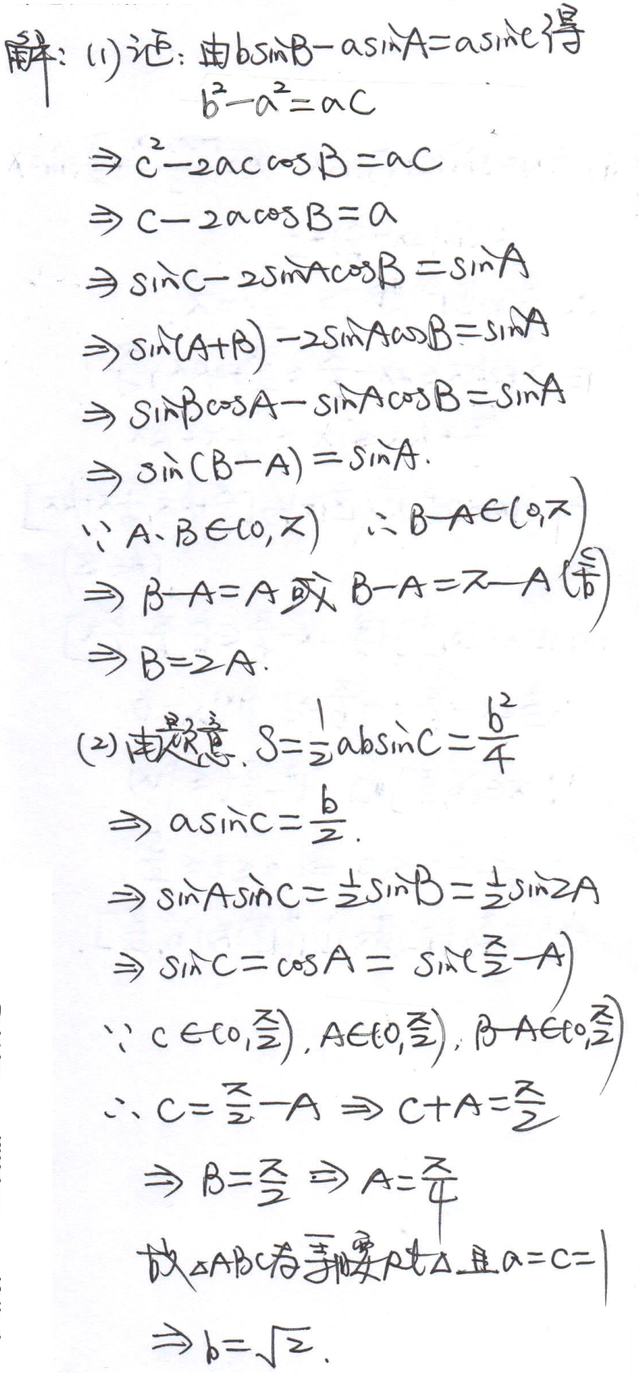 解：(1) 证：由bsinB－asinA＝asinC得
b²－a²＝ac
⇒ c²－2accosB＝ac
⇒ c－2acosB＝a
⇒ sinC－2sinAcosB＝sinA
⇒ sin(A+B)－2sinAcosB＝sinA
⇒ sinBcosA－sinAcosB＝sinA
⇒ sin(B－A)＝sinA.
∵ A、B∈(0,π) ∴ B－A∈(0,π)
⇒ B－A＝A 或 B－A＝π－A (舍)
⇒ B＝2A.
(2) 由题意, S＝½absinC＝b²/4
⇒ asinC＝b/2.
⇒ sinAsinC＝½sinB＝½sin2A
⇒ sinC＝cosA＝sin(π/2－A)
∵ C∈(0,π/2), A∈(0,π/2), B－A∈(0,π/2)
∴ C＝π/2－A ⇒ C+A＝π/2
⇒ B＝π/2 ⇒ A＝π/4
故△ABC为等腰Rt△且a＝c＝1
⇒ b＝√2.